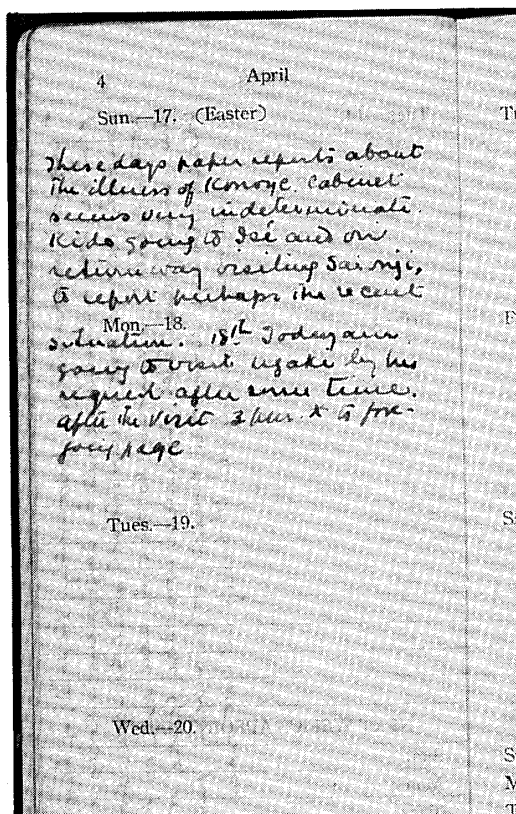 4 April
Sun.—17. (Easter)
These days paper reports about
the illness of Konoye. Cabinet
seems very indeterminate.
Kido going to Isé and on
return way visiting Saionji,
to report perhaps the recent
Mon.—18.
situation. 18th Today am
going to visit Ugaki by his
request after some time.
after the visit 3 p.m. x to fore-
going page
Tues.—19.
Wed.—20.